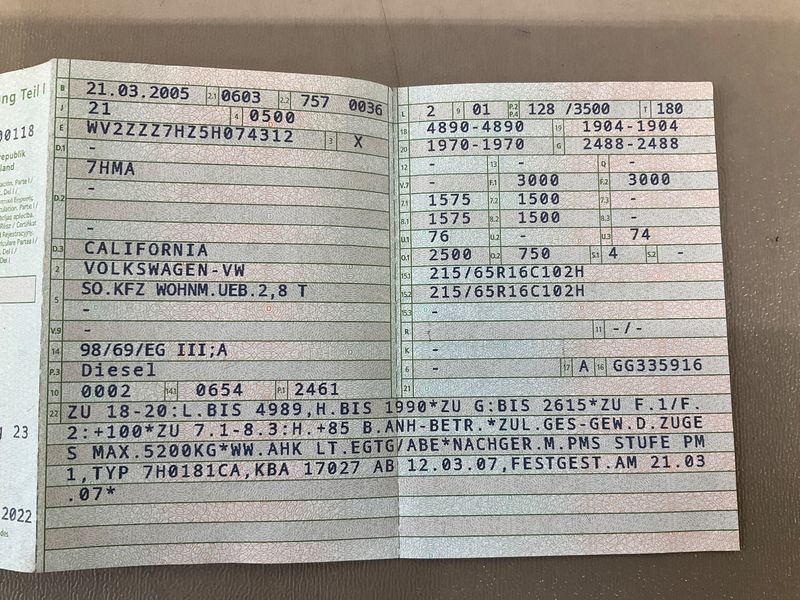 ng Teil I
00118
republik
land
g 23
2022
B 21.03.2005 2.1 0603 2.2 757 0036
J 21 4 0500
E WV2ZZZ7HZ5H074312 3 X
D.1 -
7HMA
D.2 -
-
D.3 CALIFORNIA
2 VOLKSWAGEN-VW
5 SO.KFZ WOHNM.UEB.2,8 T
-
V.9 -
14 98/69/EG III;A
P.3 Diesel
10 0002 14.1 0654 P.1 2461
L 2 9 01 P.2 P.4 128 /3500 T 180
18 4890-4890 19 1904-1904
20 1970-1970 G 2488-2488
12 - 13 - Q -
V.7 - F.1 3000 F.2 3000
7.1 1575 7.2 1500 7.3 -
8.1 1575 8.2 1500 8.3 -
U.1 76 U.2 - U.3 74
O.1 2500 O.2 750 S.1 4 S.2 -
15.1 215/65R16C102H
15.2 215/65R16C102H
15.3 -
R - 11 -/-
K -
6 - 17 A 16 GG335916
21
22 ZU 18-20:L.BIS 4989,H.BIS 1990*ZU G:BIS 2615*ZU F.1/F.
2:+100*ZU 7.1-8.3:H.+85 B.ANH-BETR.*ZUL.GES-GEW.D.ZUGE
S MAX.5200KG*WW.AHK LT.EGTG/ABE*NACHGER.M.PMS STUFE PM
1,TYP 7H0181CA,KBA 17027 AB 12.03.07,FESTGEST.AM 21.03
.07*